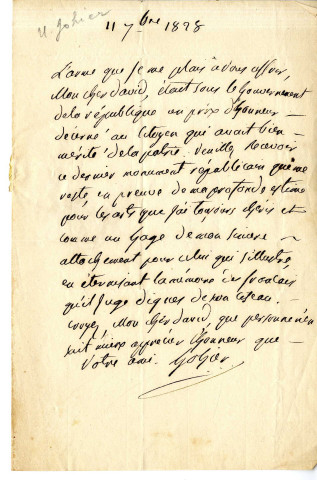 u. gohier
11 7bre 1828
L'arme que je me plais à vous offrir,
Mon cher david, était sous le gouvernement
de la république un prix d'honneur
décerné au citoyen qui avait bien
mérité de la patrie. veuillez recevoir
ce dernier monument républicain qui me
reste en preuve de ma profonde estime
pour les arts que j'ai toujours chéris et
comme un gage de mon sincère
attachement pour celui qui s'illustre
en éternisant la mémoire des français
qu'il juge dignes de son ciseau.
croyez, Mon cher david, que personne n'en
sait mieux apprécier l'honneur que
votre ami. Gohier